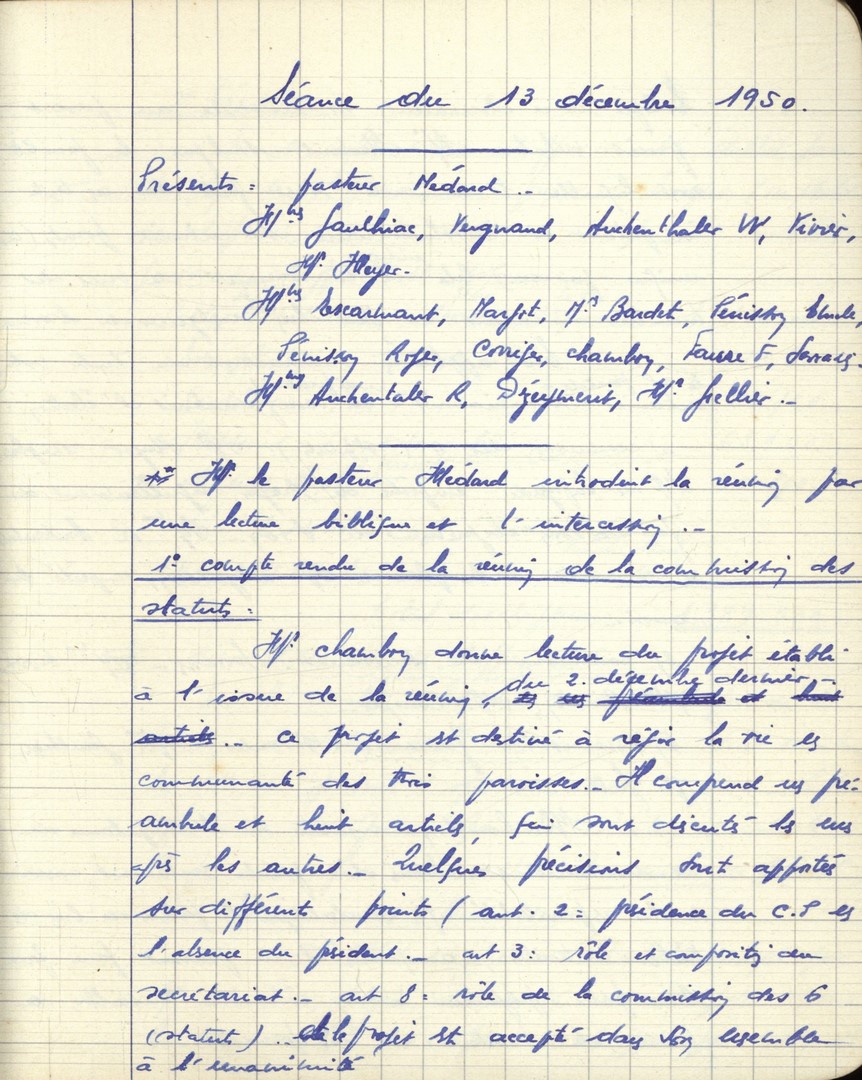 Séance du 13 décembre 1950.
Présents : pasteur Médard ..
Mrs Gaulhiac, Vergnaud, Auchenthaler W, Vivier,
Mr. Meyer.
Mrs Escarmant, Margot, Mr Bardet, Pénissou Emile,
Pénissou Roger, Corriger, chambon, Faure F,
Mrs Auchentaler R, Dézeymeris, Mr Grellier ..
Mr. le pasteur Médard introduit la réunion par
une lecture biblique et l'intercession ..
1° compte rendu de la réunion de la commission des
statuts :
Mr. chambon donne lecture du projet établi
à l'issue de la réunion, du 2. décembre dernier ..
en un préambule et huit
articles .. ce projet est destiné à régir la vie en
communauté des trois paroisses .. Il comprend un pré-
ambule et huit articles, qui sont discutés les uns
après les autres .. Quelques précisions sont apportées
sur différents points (art. 2 : présidence du C.P en
l'absence du président .. art 3 : rôle et composition du
secrétariat .. art 8 : rôle de la commission des 6
(statuts) .. le projet est accepté dans son ensemble
à l'unanimité